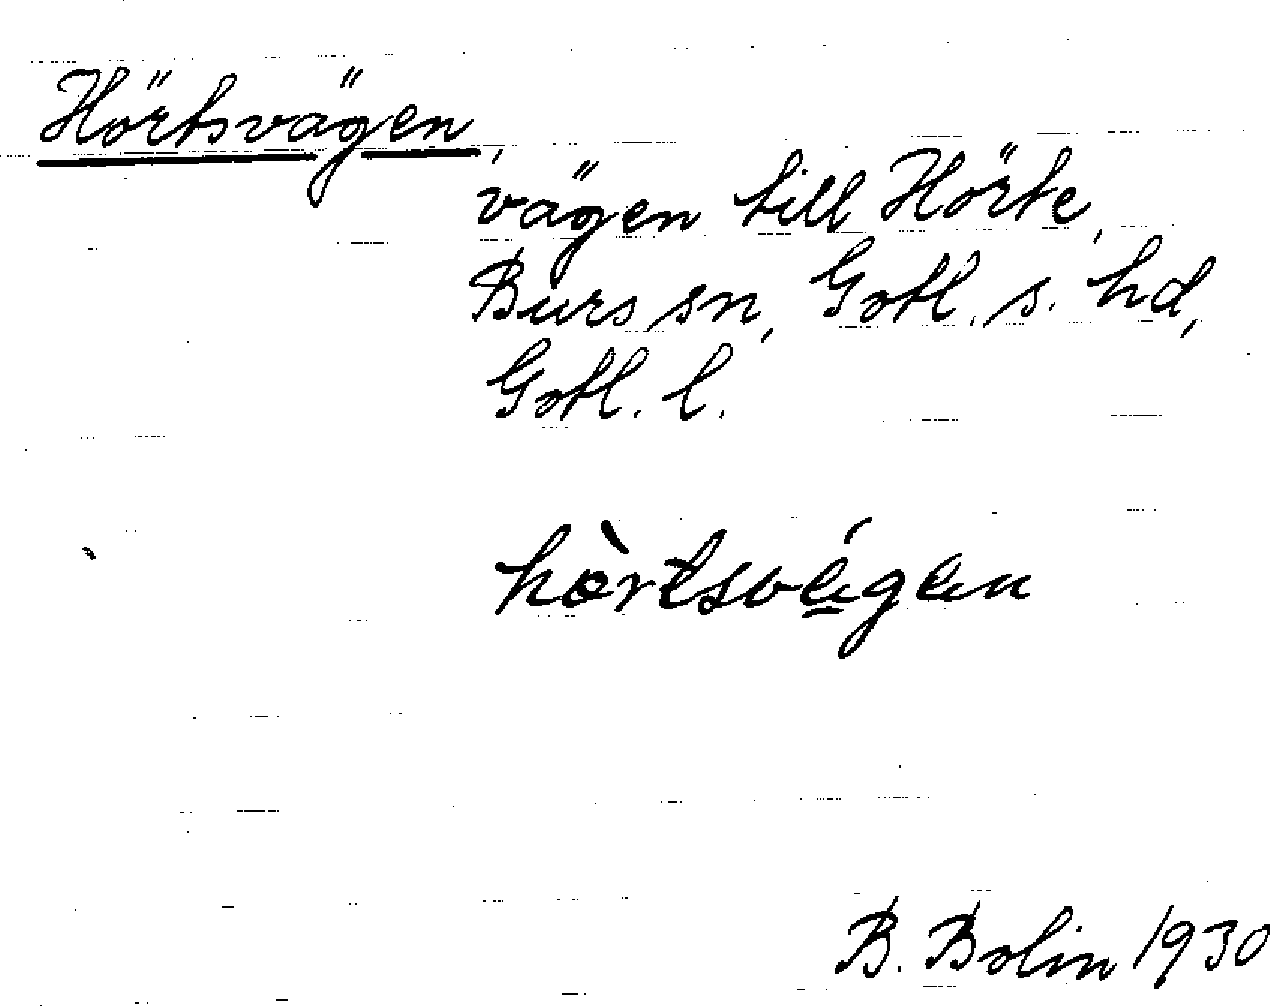 Hörtsvägen,
vägen till Hörte,
Burs sn, Gotl. s. hd,
Gotl. l.
hòrtsvégen
B. Bolin 1930